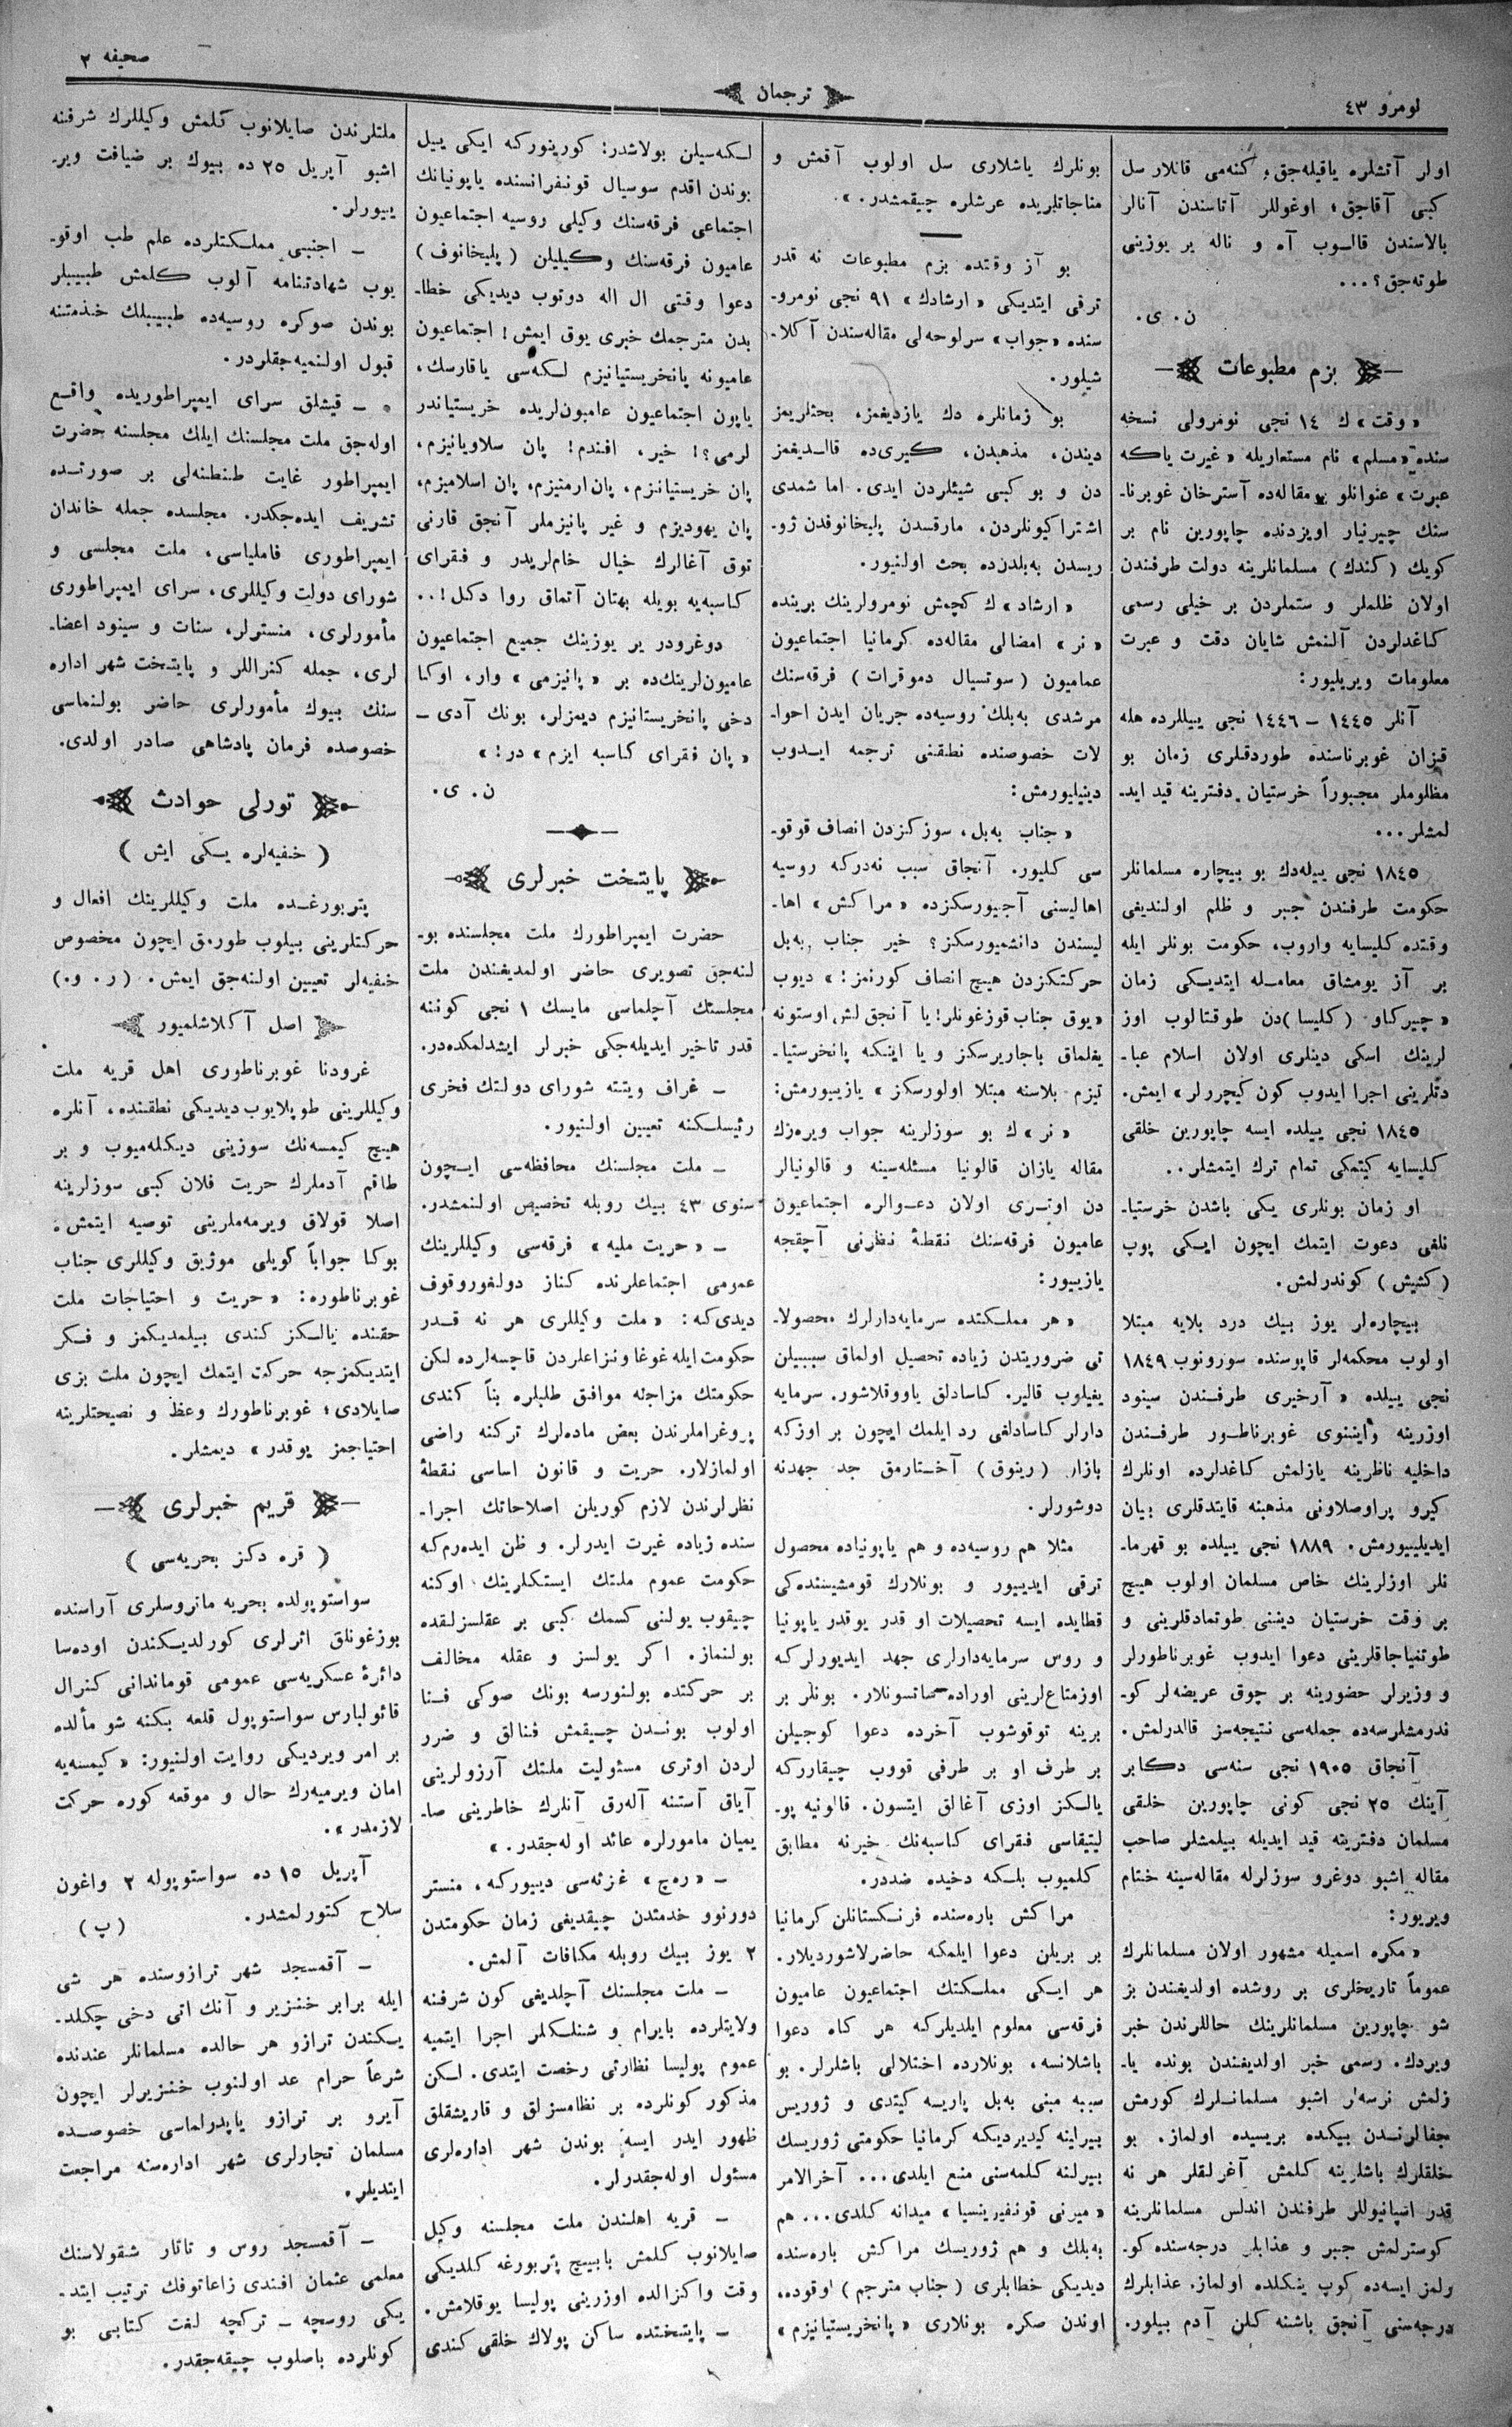 صحیفه ٢
ترجمان
نومرو ٤٣
اولر آتشلره یاقیله‌جق، کنه‌می قانلار سل
کبی آقاجق؛ اوغوللر آتاسندن آنالر
بالاسندن قالوب آه و ناله یر یوزینی
طوته‌جق؟...
ن. ی.
بزم مطبوعات
«وقت» ك ١٤ نجی نومرولی نسخه
سنده «مسلم» نام مستعاریله «غیرت یاکه
عبرت» عنوانلو بر مقاله‌ده آسترخان غوبرنا-
سنك چیرنیار اویزدنده چاپورین نام بر
کویك (کندك) مسلمانلرینه دولت طرفندن
اولان ظلملر و ستملردن بر خیلی رسمی
کاغدلردن آلنمش شایان دقت و عبرت
معلومات ویریلیور:
آنلر ١٤٤٥ – ١٤٤٦ نجی ییللرده هله
قزان غوبرناسنده طوردقلری زمان بو
مظلوملر مجبوراً خرستیان دفترینه قید اید-
لمشلر...
١٨٤٥ نجی ییله‌دك بو بیچاره مسلمانلر
حکومت طرفندن جبر و ظلم اولندیغی
وقتده کلیسایه واروب، حکومت بونلر ایله
بر آز یومشاق معامله ایتدیکی زمان
«چیرکاو (کلیسا)دن طوقتالوب اوز
لرینك اسکی دینلری اولان اسلام عبا-
دتلرینی اجرا ایدوب کون کیچررلر» ایمش.
١٨٤٥ نجی ییلده ایسه چاپورین خلقی
کلیسایه کیتمکی تمام ترك ایتمشلر..
او زمان بونلری یکی باشدن خرستیا-
نلغی دعوت ایتمك ایچون ایکی پوپ
(کشیش) کوندرلمش.
بیچاره‌لر یوز بیك درد بلایه مبتلا
اولوب محکمه‌لر قاپوسنده سورونوب ١٨٤٩
نجی ییلده «آرخیری طرفندن سینود
اوزرینه و ایننوی غوبرناطور طرفندن
داخلیه ناظرینه یازلمش کاغدلرده اونلرك
کیرو پراوصلاونی مذهبنه قایتدقلری بیان
ایدیلییورمش. ١٨٨٩ نجی ییلده بو قهرما-
نلر اوزلرینك خاص مسلمان اولوب هیچ
بر وقت خرستیان دیننی طوتمادقلرینی و
طوتنیاجاقلرینی دعوا ایدوب غوبرناطورلر
و وزیرلر حضورینه بر چوق عریضه‌لر کو-
ندرمشلرسه‌ده جمله‌سی نتیجه‌سز قالدرلمش.
آنجاق ١٩٠٥ نجی سنه‌سی دکابر
آینك ٢٥ نجی کونی چاپورین خلقی
مسلمان دفترینه قید ایدیله بیلمشلر صاحب
مقاله اشبو دوغرو سوزلرله مقاله‌سینه ختام
ویریور:
«مکره اسمیله مشهور اولان مسلمانلرك
عموماً تاریخلری بر روشده اولدیغندن بز
شو چاپورین مسلمانلرینك حاللرندن خبر
ویردك. رسمی خبر اولدیغندن بونده یا-
زلمش نرسه‌لر اشبو مسلمانلرك کورمش
جفالرندن بیکده بریسیده اولماز. بو
خلقلرك باشلرینه کلمش آغرلقلر هر نه
قدر اسپانیوللر طرفندن اندلس مسلمانلرینه
کوسترلمش جبر و عذابلر درجه‌سنده کو-
ولمز ایسه‌ده کوپ یتکلده اولماز. عذابلرك
درجه‌سنی آنجق باشنه کلن آدم بیلور.
بونلرك یاشلاری سل اولوب آقمش و
مناجاتلریده عرشلره چیقمشدر.».
بو آز وقتده بزم مطبوعات نه قدر
ترقی ایتدیکی «ارشادك» ٩١ نجی نومرو-
سنده «جواب» سرلوحه‌لی مقاله‌سندن آکلا-
شیلور.
بو زمانلره دك یازدیغمز، بحثلریمز
دیندن، مذهبدن، کیری‌ده قالدیغمز
دن و بو کبی شیئلردن ایدی. اما شمدی
اشتراکیونلردن، مارقسدن پلیخانوفدن ژو-
ریسدن به‌بلدن‌ده بحث اولنیور.
«ارشاد» ك کچمش نومرولرینك برینده
«نر» امضالی مقاله‌ده کرمانیا اجتماعیون
عمامیون (سوتسیال دموقرات) فرقه‌سنك
مرشدی به‌بلك روسیه‌ده جریان ایدن احوا-
لات خصوصنده نطقنی ترجمه ایدوب
دینیلیورمش:
«جناب به‌بل، سوزکزدن انصاف قوقو-
سی کلیور. آنجاق سبب نه‌درکه روسیه
اهالیسنی آجیورسکزده «مراکش» اها-
لیسندن دانشمیورسکز؟ خیر جناب به‌بل
حرکتکزدن هیچ انصاف کورنمز!» دیوب
«یوق جناب قوزغونلر! یا آنجق لش اوستونه
یغلماق باجاریرسکز و یا اینکه پانخرستیا-
نیزم بلاسنه مبتلا اولورسکز» یازییورمش:
«نر» ك بو سوزلرینه جواب ویره‌رك
مقاله یازان قالونیا مسئله‌سینه و قالونیالر
دن اوتری اولان دعوالره اجتماعیون
عامیون فرقه‌سنك نقطهٔ نظرنی آچقجه
یازییور:
«هر مملکتده سرمایه‌دارلرك محصولا-
تی ضروریتدن زیاده تحصیل اولماق سببیلن
یغیلوب قالیر. کاسادلق یاووقلاشور. سرمایه
دارلر کاسادلغی رد ایلمك ایچون بر اوزکه
بازار (رینوق) آختارمق جد جهدنه
دوشورلر.
مثلا هم روسیه‌ده و هم یاپونیاده محصول
ترقی ایدییور و بونلارك قومشیسنده‌کی
قطایده ایسه تحصیلات او قدر یوقدر یاپونیا
و روس سرمایه‌دارلری جهد ایدیورلرکه
اوزمتاع‌لرینی اوراده صاتسونلار. بونلر بر
برینه توقوشوب آخرده دعوا کوجیلن
بر طرف او بر طرفی قووب چیقاررکه
یالکز اوزی آغالق ایتسون. قالونیه پو-
لیتیقاسی فقرای کاسبه‌نك خیرنه مطابق
کلمیوب بلکه دخیده ضددر.
مراکش باره‌سنده فرنکستانلن کرمانیا
بر بریلن دعوا ایلمکه حاضرلاشوردیلار.
هر ایکی مملکتك اجتماعیون عامیون
فرقه‌سی معلوم ایلدیلرکه هر کاه دعوا
باشلانسه، بونلارده اختلالی باشلرلر. بو
سببه مبنی به‌بل پاریسه کیتدی و ژوریس
بیرلینه کیدیردیکه کرمانیا حکومتی ژوریسك
بیرلنه کلمه‌سنی منع ایلدی... آخرالامر
«میرنی قونفیرینسیا» میدانه کلدی... هم
به‌بلك و هم ژوریسك مراکش باره‌سنده
دیدیکی خطابلری (جناب مترجم) اوقوده،
اوندن صکره بونلاری «پانخریستیانیزم»
لکه‌سیلن بولاشدر! کورینورکه ایکی ییل
بوندن اقدم سوسیال قونفرانسنده یاپونیانك
اجتماعی فرقه‌سنك وکیلی روسیه اجتماعیون
عامیون فرقه‌سنك وکیلیلن (پلیخانوف)
دعوا وقتی ال اله دوتوب دیدیکی خطا-
بدن مترجمك خبری یوق ایمش! اجتماعیون
عامیونه یانخریستیانیزم لکه‌سی یاقارسك،
یاپون اجتماعیون عامیون‌لریده خریستیاندر
لرمی؟! خیر، افندم! پان سلاویانیزم،
پان خریستیانیزم، پان‌ارمنیزم، پان اسلامیزم،
پان یهودیزم و غیر پانیزملر آنجق قارنی
توق آغالرك خیال خام‌لریدر و فقرای
کاسبه‌یه بویله بهتان آتماق روا دکل!..
دوغرودر یر یوزینك جمیع اجتماعیون
عامیون‌لرینك‌ده بر «پانیزمی» وار، اوکا
دخی پانخریستانیزم دیمزلر، بونك آدی –
«پان فقرای کاسبه ایزم» در!»
ن. ی.
پایتخت خبرلری
حضرت ایمپراطورك ملت مجلسنده بو-
لنه‌جق تصویری حاضر اولمدیغندن ملت
مجلسنك آچلماسی مایسك ١ نجی کوننه
قدر تاخیر ایدیله‌جکی خبرلر ایشدلمکده‌در.
– غراف ویتته شورای دولتك فخری
رئیسلکنه تعیین اولنیور.
– ملت مجلسنك محافظه‌سی ایچون
سنوی ٤٣ بیك روبله تخصیص اولنمشدر.
– «حریت ملیه» فرقه‌سی وکیللرینك
عمومی اجتماعلرنده کناز دولغوروقوف
دیدی‌که: «ملت وکیللری هر نه قدر
حکومت ایله غوغا و نزاعلردن قاچسه‌لرده لکن
حکومتك مزاجنه موافق طلبلره بناً کندی
پروغراملرندن بعض ماده‌لرك ترکنه راضی
اولمازلار. حریت و قانون اساسی نقطهٔ
نظرلرندن لازم کوریلن اصلاحاتك اجرا-
سنده زیاده غیرت ایدرلر. و ظن ایده‌رم‌که
حکومت عموم ملتك ایستکلرینك اوکنه
چیقوب یولنی کسمك کبی بر عقلسزلقده
بولنماز. اکر یولسز و عقله مخالف
بر حرکتده بولنورسه بونك صوکی فنا
اولوب بوندن چیقمش فنالق و ضرر
لردن اوتری مسئولیت ملتك آرزولرینی
آیاق آستنه آله‌رق آنلرك خاطرینی صا-
یمیان مامورلره عائد اوله‌جقدر.»
– «ره‌چ» غزته‌سی دییورکه، منستر
دورنوو خدمتدن چیقدیغی زمان حکومتدن
٢ یوز بیك روبله مکافات آلمش.
– ملت مجلسنك آچلدیغی کون شرفنه
ولایتلرده بایرام و شنلکلر اجرا ایتمیه
عموم پولیسا نظارتی رخصت ایتدی. لکن
مذکور کونلرده بر نظامسزلق و قاریشقلق
ظهور ایدر ایسه بوندن شهر اداره‌لری
مسئول اوله‌جقدرلر.
– قریه اهلندن ملت مجلسنه وکیل
صایلانوب کلمش بابییچ پتربورغه کلدیکی
وقت واکزالده اوزرینی پولیسا یوقلامش.
– پایتختده ساکن پولاك خلقی کندی
ملتلرندن صایلانوب کلمش وکیللرك شرفنه
اشبو آپریل ٢٥ ده بیوك بر ضیافت ویر-
ییورلر.
– اجنبی مملکتلرده علم طب اوقو-
یوب شهادتنامه آلوب کلمش طبیبلر
بوندن صوکره روسیه‌ده طبیبلك خذمتنه
قبول اولنمیه‌جقلردر.
– قیشلق سرای ایمپراطوریده واقع
اوله‌جق ملت مجلسنك ایلك مجلسنه حضرت
ایمپراطور غایت طنطنه‌لی بر صورتده
تشریف ایده‌جکدر. مجلسده جمله خاندان
ایمپراطوری فاملیاسی، ملت مجلسی و
شورای دولت وکیللری، سرای ایمپراطوری
مأمورلری، منسترلر، سنات و سینود اعضا-
لری، جمله کنراللر و پایتخت شهر اداره
سنك بیوك مأمورلری حاضر بولنماسی
خصوصده فرمان پادشاهی صادر اولدی.
تورلی حوادث
(خفیه‌لره یکی ایش)
پتربورغده ملت وکیللرینك افعال و
حرکتلرینی بیلوب طورمق ایچون مخصوص
خفیه‌لر تعیین اولنه‌جق ایمش. (ر. و.)
اصل آکلاشلمیور
غرودنا غوبرناطوری اهل قریه ملت
وکیللرینی طوپلایوب دیدیکی نطقنده، آنلره
هیچ کیمسه‌نك سوزینی دیکله‌میوب و بر
طاقم آدملرك حریت فلان کبی سوزلرینه
اصلا قولاق ویرمه‌ملرینی توصیه ایتمش.
بوکا جواباً کویلی موژیق وکیللری جناب
غوبرناطوره: «حریت و احتیاجات ملت
حقنده یالکز کندی بیلمدیکمز و فکر
ایتدیکمزجه حرکت ایتمك ایچون ملت بزی
صایلادی؛ غوبرناطورك وعظ و نصیحتلرینه
احتیاجمز یوقدر» دیمشلر.
قریم خبرلری
(قره دکز بحریه‌سی)
سواستوپولده بحریه ماتروسلری آراسنده
بوزغونلق اثرلری کورلدیکندن اوده‌سا
دائرهٔ عسکریه‌سی عمومی قوماندانی کنرال
قائولبارس سواستوپول قلعه بکنه شو مألده
بر امر ویردیکی روایت اولنیور: «کیمسه‌یه
امان ویرمیه‌رك حال و موقعه کوره حرکت
لازمدر».
آپریل ١٥ ده سواستوپوله ٢ واغون
سلاح کتورلمشدر. (پ)
– آقمسجد شهر ترازوسنده هر شی
ایله برابر خنزیر و آنك اتی دخی چکلد-
یکندن ترازو هر حالده مسلمانلر عندنده
شرعاً حرام عد اولنوب خنزیرلر ایچون
آیرو بر ترازو یاپدرلماسی خصوصده
مسلمان تجارلری شهر اداره‌سنه مراجعت
ایتدیلر.
– آقمسجد روس و تاتار شقولاسنك
معلمی عثمان افندی زاعاتوفك ترتیب ایتد-
یکی روسچه – ترکچه لغت کتابی بو
کونلرده باصلوب چیقه‌جقدر.